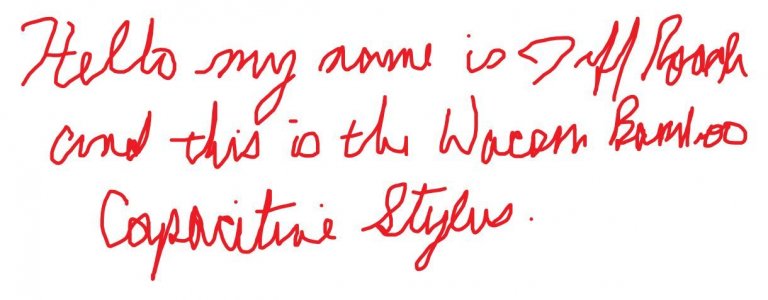 Hello my name is Jeff Roach
and this is the Wacom Bamboo
Capacitive Stylus.